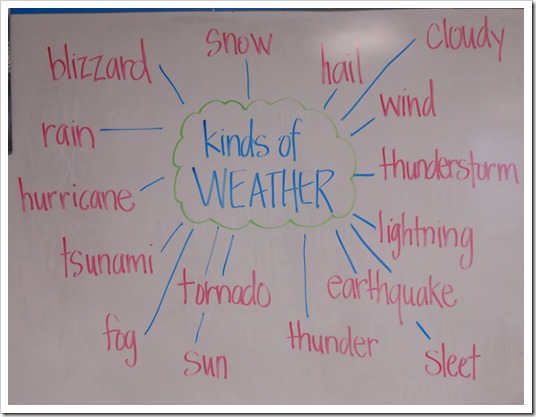 snow
cloudy
blizzard
hail
wind
rain
kinds of
WEATHER
thunderstorm
hurricane
lightning
tsunami
tornado
earthquake
fog
sun
thunder
sleet